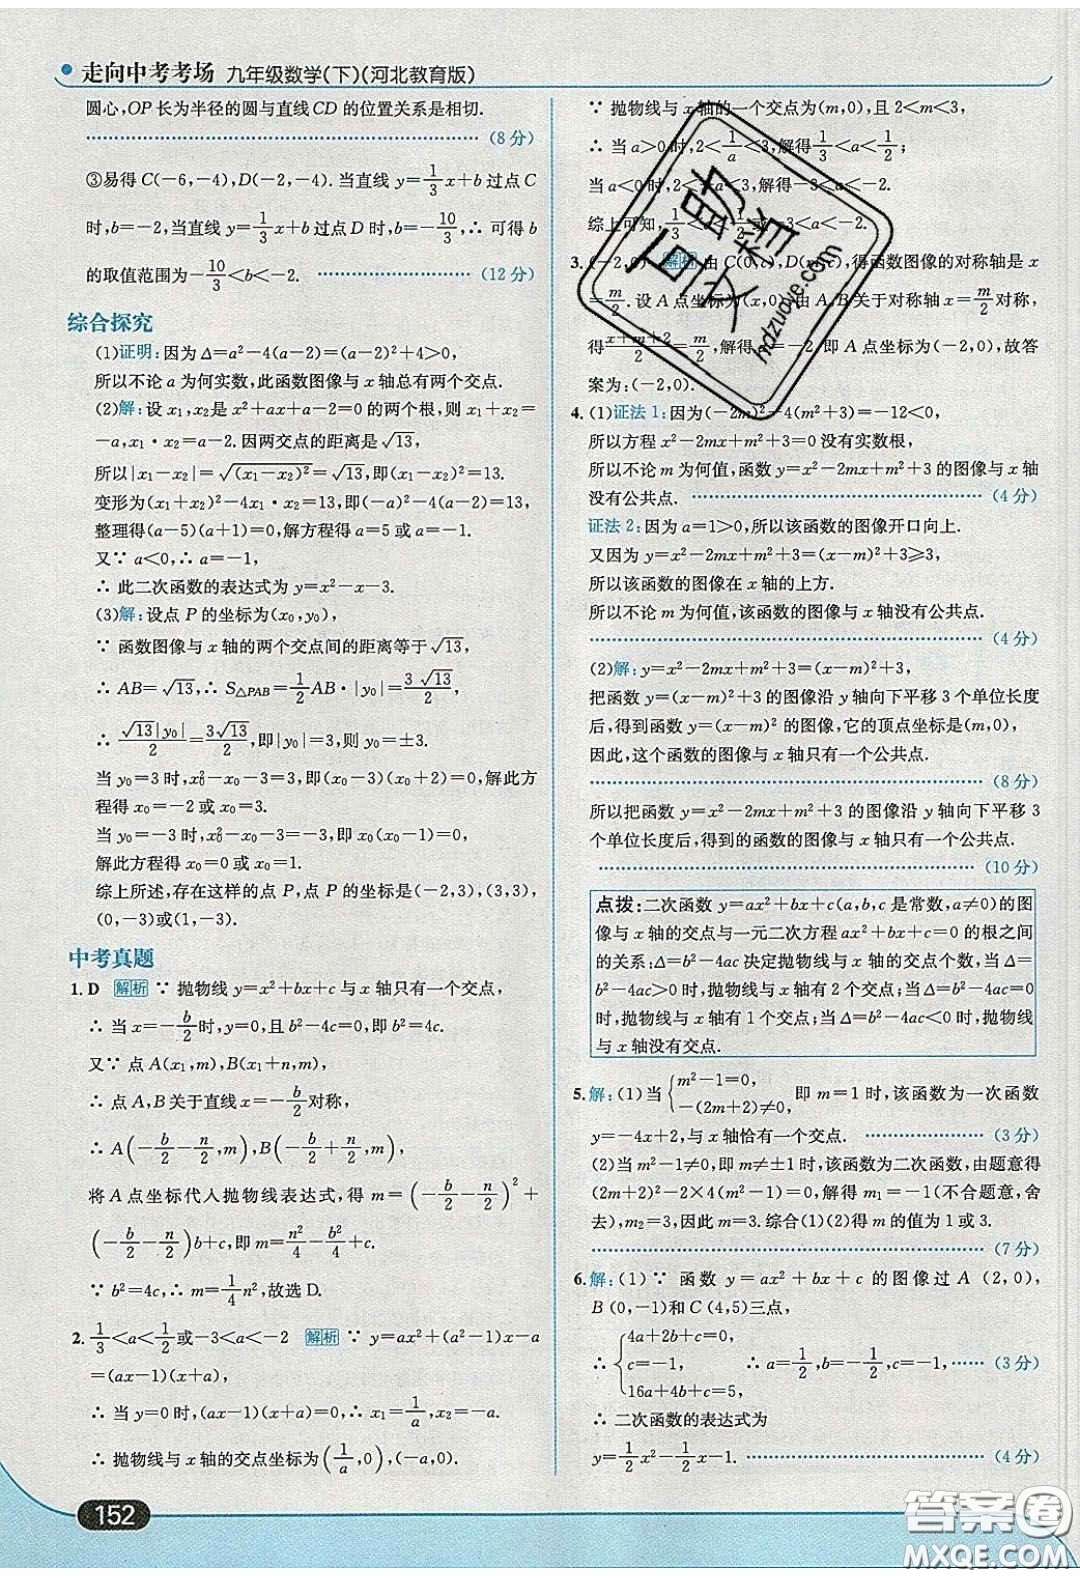 走向中考考场 九年级数学(下)(河北教育版)
圆心,OP长为半径的圆与直线CD的位置关系是相切.
(8分)
③易得C(-6,-4),D(-2,-4).当直线y=1/3x+b过点C
时,b=-2,当直线y=1/3x+b过点D时,b=-10/3,∴可得b
的取值范围为-10/3<b<-2. (12分)
综合探究
(1)证明:因为Δ=a²-4(a-2)=(a-2)²+4>0,
所以不论a为何实数,此函数图像与x轴总有两个交点.
(2)解:设x₁,x₂是x²+ax+a-2=0的两个根,则x₁+x₂=
-a,x₁·x₂=a-2.因两交点的距离是√13,
所以|x₁-x₂|=√(x₁-x₂)²=√13,即(x₁-x₂)²=13.
变形为(x₁+x₂)²-4x₁·x₂=13,即(-a)²-4(a-2)=13,
整理得(a-5)(a+1)=0,解方程得a=5或a=-1.
又∵a<0,∴a=-1,
∴此二次函数的表达式为y=x²-x-3.
(3)解:设点P的坐标为(x₀,y₀),
∵函数图像与x轴的两个交点间的距离等于√13,
∴AB=√13,∴S△PAB=1/2AB·|y₀|=3√13/2,
∴√13|y₀|/2=3√13/2,即|y₀|=3,则y₀=±3.
当y₀=3时,x₀²-x₀-3=3,即(x₀-3)(x₀+2)=0,解此方
程得x₀=-2或x₀=3.
当y₀=-3时,x₀²-x₀-3=-3,即x₀(x₀-1)=0,
解此方程得x₀=0或x₀=1.
综上所述,存在这样的点P,点P的坐标为(-2,3),(3,3),
(0,-3)或(1,-3).
中考真题
1.D 解析 ∵抛物线y=x²+bx+c与x轴只有一个交点,
∴当x=-b/2时,y=0,且b²-4c=0,即b²=4c.
又∵点A(x₁,m),B(x₁+n,m),
∴点A,B关于直线x=-b/2对称,
∴A(-b/2-n/2,m),B(-b/2+n/2,m),
将A点坐标代入抛物线表达式,得m=(-b/2-n/2)²+
(-b/2-n/2)b+c,即m=n²/4-b²/4+c.
∵b²=4c,∴m=1/4n²,故选D.
2.1/3<a<1/2或-3<a<-2 解析 ∵y=ax²+(a²-1)x-a
=(ax-1)(x+a),
∴当y=0时,(ax-1)(x+a)=0,∴x₁=1/a,x₂=-a.
∴抛物线与x轴的交点坐标为(1/a,0),(-a,0).
∵抛物线与x轴的一个交点为(m,0),且2<m<3,
∴当a>0时,2<1/a<3,解得1/3<a<1/2;
当a<0时,2<-a<3,解得-3<a<-2.
综上可知,1/3<a<1/2或-3<a<-2.
3.(-2,0) 解析 由C(0,c),D(m,c),得函数图像的对称轴是x
=m/2.设A点坐标为(x,0),由A,B关于对称轴x=m/2对称,
得x+m+2/2=m/2,解得x=-2,即A点坐标为(-2,0),故答
案为:(-2,0).
4.(1)证法1:因为(-2m)²-4(m²+3)=-12<0,
所以方程x²-2mx+m²+3=0没有实数根,
所以不论m为何值,函数y=x²-2mx+m²+3的图像与x轴
没有公共点. (4分)
证法2:因为a=1>0,所以该函数的图像开口向上.
又因为y=x²-2mx+m²+3=(x-m)²+3≥3,
所以该函数的图像在x轴的上方.
所以不论m为何值,该函数的图像与x轴没有公共点.
(4分)
(2)解:y=x²-2mx+m²+3=(x-m)²+3,
把函数y=(x-m)²+3的图像沿y轴向下平移3个单位长度
后,得到函数y=(x-m)²的图像,它的顶点坐标是(m,0),
因此,这个函数的图像与x轴只有一个公共点.
(8分)
所以把函数y=x²-2mx+m²+3的图像沿y轴向下平移3
个单位长度后,得到的函数的图像与x轴只有一个公共点.
(10分)
点拨:二次函数y=ax²+bx+c(a,b,c是常数,a≠0)的图
像与x轴的交点与一元二次方程ax²+bx+c=0的根之间
的关系:Δ=b²-4ac决定抛物线与x轴的交点个数,当Δ=
b²-4ac>0时,抛物线与x轴有2个交点;当Δ=b²-4ac=0
时,抛物线与x轴有1个交点;当Δ=b²-4ac<0时,抛物线
与x轴没有交点.
5.解:(1)当{m²-1=0, -(2m+2)≠0, 即m=1时,该函数为一次函数
y=-4x+2,与x轴恰有一个交点. (3分)
(2)当m²-1≠0,即m≠±1时,该函数为二次函数,由题意得
(2m+2)²-2×4(m²-1)=0,解得m₁=-1(不合题意,舍
去),m₂=3,因此m=3.综合(1)(2)得m的值为1或3.
(7分)
6.解:(1)∵函数y=ax²+bx+c的图像过A(2,0),
B(0,-1)和C(4,5)三点,
∴{4a+2b+c=0, c=-1, 16a+4b+c=5, ∴a=1/2,b=-1/2,c=-1, (3分)
∴二次函数的表达式为
y=1/2x²-1/2x-1. (4分)
152
互助文档
hdzuoye.com
答案圈
MXQE.COM